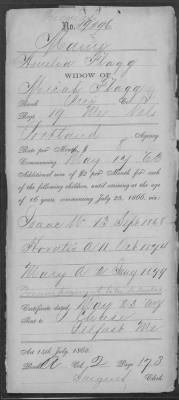 No. 19096
Maine
Amelia Flagg
WIDOW OF
Micah Flagg
Rank Pri Co.
Regt 19 Me Vols
Portland Agency
Rate per Month, $ 8
Commencing May 17 65
Additional sum of $2 per Month for each
of the following children, until arriving at the age
of 16 years, commencing July 25, 1866, viz:
Isaac W. 13 Sept 1868
Horatio A. N. Oct 1874
Mary A 2 Aug 1879
Certificate dated May 23 67
Sent to
Belfast Me
Act 25th July, 1866.
Book A Vol. 2 Page 173
Clerk